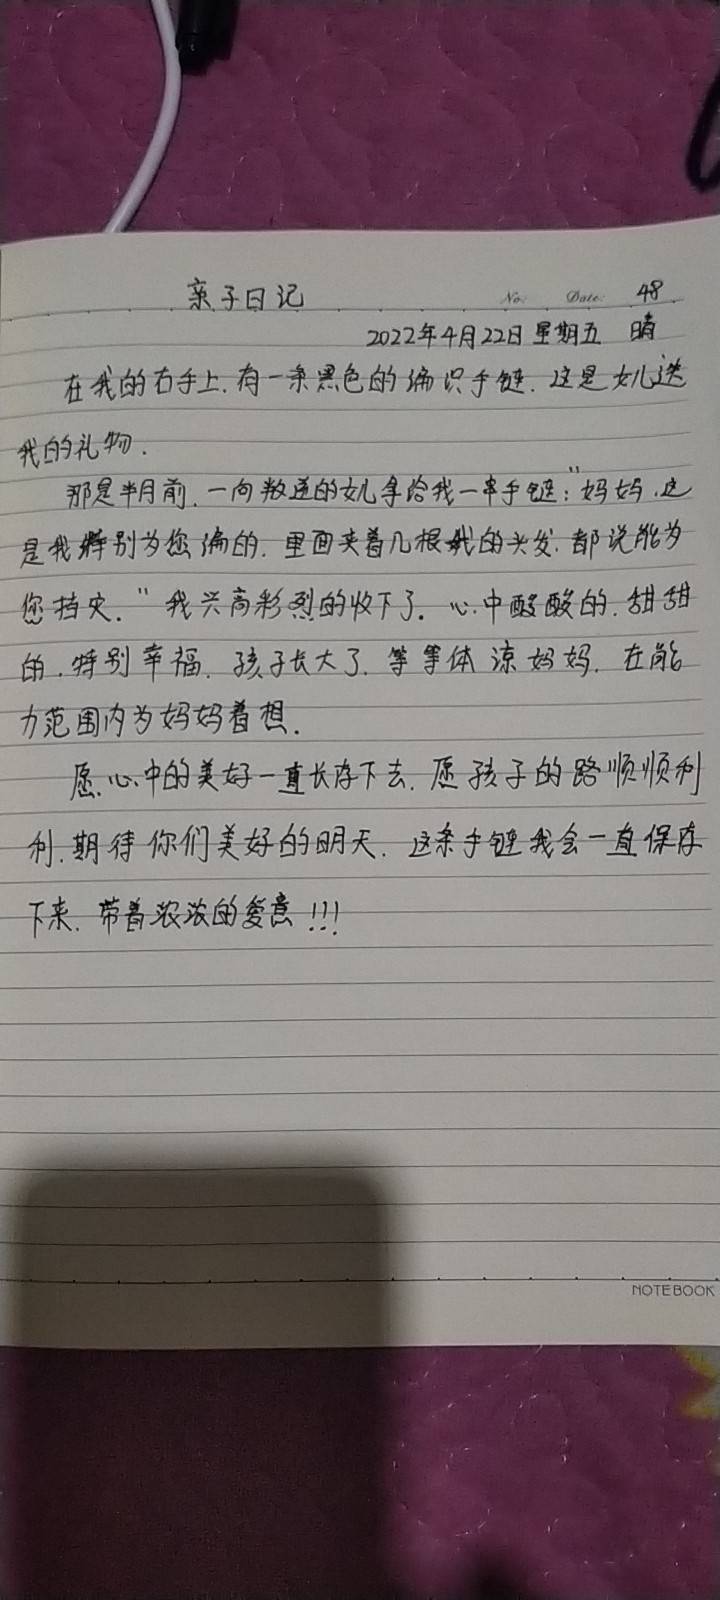 亲子日记 No: Date: 48
2022年4月22日 星期五 晴
在我的右手上.有一条黑色的编识手链.这是女儿送
我的礼物.
那是半月前.一向叛逆的女儿拿给我一串手链:"妈妈.这
是我特别为您编的.里面夹着几根我的头发.都说能为
您挡灾."我兴高彩烈的收下了.心中酸酸的.甜甜
的.特别幸福.孩子长大了.等等体凉妈妈.在能
力范围内为妈妈着想.
愿心中的美好一直长存下去.愿孩子的路顺顺利
利.期待你们美好的明天.这条手链我会一直保存
下来.带着浓浓的爱意!!!
NOTEBOOK